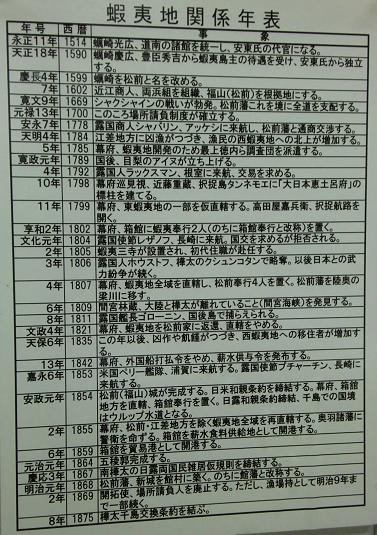 蝦夷地関係年表
年号 西暦 事象
永正11年 1514 蠣崎光広、道南の諸館を統一し、安東氏の代官になる。
天正18年 1590 蠣崎慶広、豊臣秀吉から蝦夷島主の待遇を受け、安東氏から独立
する。
慶長4年 1599 蠣崎を松前と名を改める。
7年 1602 近江商人、両浜組を組織、福山(松前)を根拠地にする。
寛文9年 1669 シャクシャインの戦いが勃発。松前藩これを境に全道を支配する。
元禄13年 1700 このころ場所請負制度が確立する。
安永7年 1778 露国商人シャバリン、アッケシに来航し、松前藩と通商交渉する。
天明4年 1784 江差地方に凶漁がつづき、漁民の西蝦夷地への北上が増加する。
5年 1785 幕府、蝦夷地開発のため最上徳内ら調査団を派遣する。
寛政元年 1789 国後、目梨のアイヌが立ち上げる。
4年 1792 露国人ラックスマン、根室に来航、交易を求める。
10年 1798 幕府巡見視、近藤重蔵、択捉島タンネモエに「大日本恵土呂府」の
標柱を建てる。
11年 1799 幕府、東蝦夷地の一部を仮直轄する。高田屋嘉兵衛、択捉航路を
開く。
享和2年 1802 幕府、箱館に蝦夷奉行2人(のちに箱館奉行と改称)を置く。
文化元年 1804 露国使節レザノフ、長崎に来航。国交を求めるが拒否される。
2年 1805 蝦夷三寺が設置され、初代住職が赴任する。
3年 1806 露国人ホウストフ、樺太のクシュンコタンで略奪。以後日本との武
力紛争が続く。
4年 1807 幕府、蝦夷地全域を直轄し、松前奉行4人を置く。松前藩を陸奥の
梁川に移す。
6年 1809 間宮林蔵、大陸と樺太が離れていること(間宮海峡)を発見する。
8年 1811 露国艦長ゴローニン、国後島で捕らえられる。
文政4年 1821 幕府、蝦夷地を松前家に返還、直轄をやめる。
天保6年 1835 この年以後、凶作や飢饉がつづき、西蝦夷地への移住者が増加す
る。
13年 1842 幕府、外国船打払令をやめ、薪水供与令を発布する。
嘉永6年 1853 米国ペリー艦隊、浦賀に来航する。露国使節プチャーチン、長崎に
来航する。
安政元年 1854 松前(福山)城が完成する。日米和親条約を締結する。幕府、箱館
地方を直轄、箱館奉行を置く。日露和親条約締結、千島での国境
はウルップ水道となる。
2年 1855 幕府、松前・江差地方を除く蝦夷地全域を再直轄する。奥羽諸藩に
警衛を命する。箱館を薪水食料供給地として開港する。
6年 1859 箱館を貿易港として開港する。
元治元年 1864 五稜郭完成する。
慶応3年 1867 南樺太の日露両国民雑居仮規則を締結する。
明治元年 1868 松前藩、新城を館村に築く。のちに館藩と改称する。
2年 1869 開拓使、場所請負人を廃止する。ただし、漁場持として明治9年ま
で一部続く。
8年 1875 樺太千島交換条約を結ぶ。